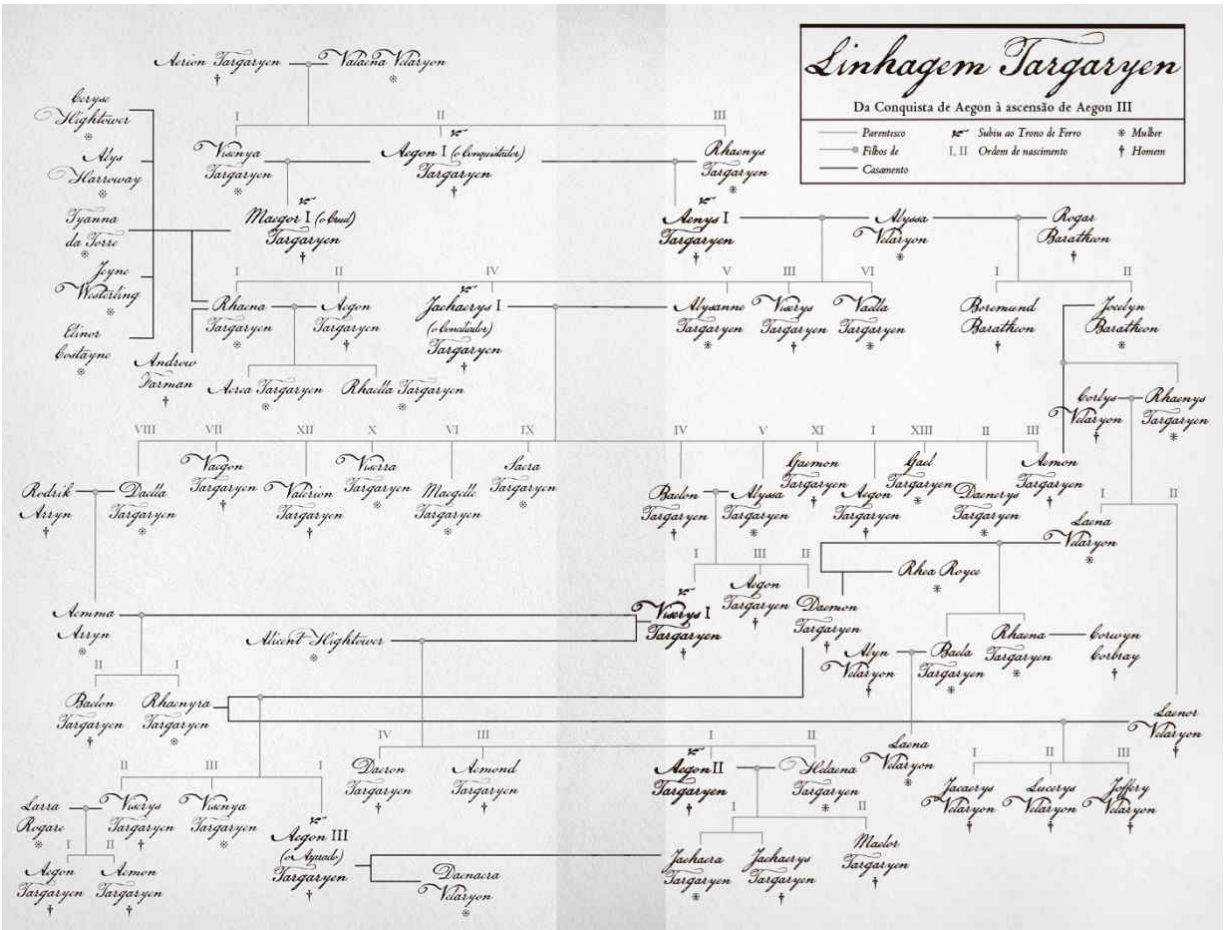 Linhagem Targaryen
Da Conquista de Aegon à ascensão de Aegon III
Parentesco
Filhos de
Casamento
Subiu ao Trono de Ferro
I, II Ordem de nascimento
Mulher
Homem
Aerion Targaryen
Valaena Velaryon
I II III
Ceryse
Hightower
Alys
Harroway
Tyanna
da Torre
Jeyne
Westerling
Elinor
Costayne
Visenya
Targaryen
Aegon I (o Conquistador)
Targaryen
Rhaenys
Targaryen
Maegor I (o Cruel)
Targaryen
Aenys I
Targaryen
Alyssa
Velaryon
Rogar
Baratheon
I II IV V III VI I II
Rhaena
Targaryen
Aegon
Targaryen
Jaehaerys I
(o Conciliador)
Targaryen
Alysanne
Targaryen
Viserys
Targaryen
Vaella
Targaryen
Boremund
Baratheon
Jocelyn
Baratheon
Andrew
Farman
Aerea Targaryen
Rhaella Targaryen
Corlys
Velaryon
Rhaenys
Targaryen
VIII VII XII X VI IX IV V XI I XIII II III
Rodrik
Arryn
Daella
Targaryen
Vaegon
Targaryen
Valerion
Targaryen
Viserra
Targaryen
Maegelle
Targaryen
Saera
Targaryen
Baelon
Targaryen
Alyssa
Targaryen
Gaemon
Targaryen
Aegon
Targaryen
Gael
Targaryen
Daenerys
Targaryen
Aemon
Targaryen
I II
Laena
Velaryon
I III II
Rhea Royce
Aemma
Arryn
Alicent Hightower
Viserys I
Targaryen
Aegon
Targaryen
Daemon
Targaryen
Alyn
Velaryon
Baela
Targaryen
Rhaena
Targaryen
Corwyn
Corbray
II I
Baelon
Targaryen
Rhaenyra
Targaryen
Laenor
Velaryon
IV III I II
Daeron
Targaryen
Aemond
Targaryen
Aegon II
Targaryen
Helaena
Targaryen
Laena
Velaryon
I II III
Jacaerys
Velaryon
Lucerys
Velaryon
Joffery
Velaryon
II III I
Larra
Rogare
Viserys
Targaryen
Visenya
Targaryen
Aegon III
(o Azarado)
Targaryen
I II
Aegon
Targaryen
Aemon
Targaryen
Daenaera
Velaryon
I II
Jaehaera
Targaryen
Jaehaerys
Targaryen
Maelor
Targaryen